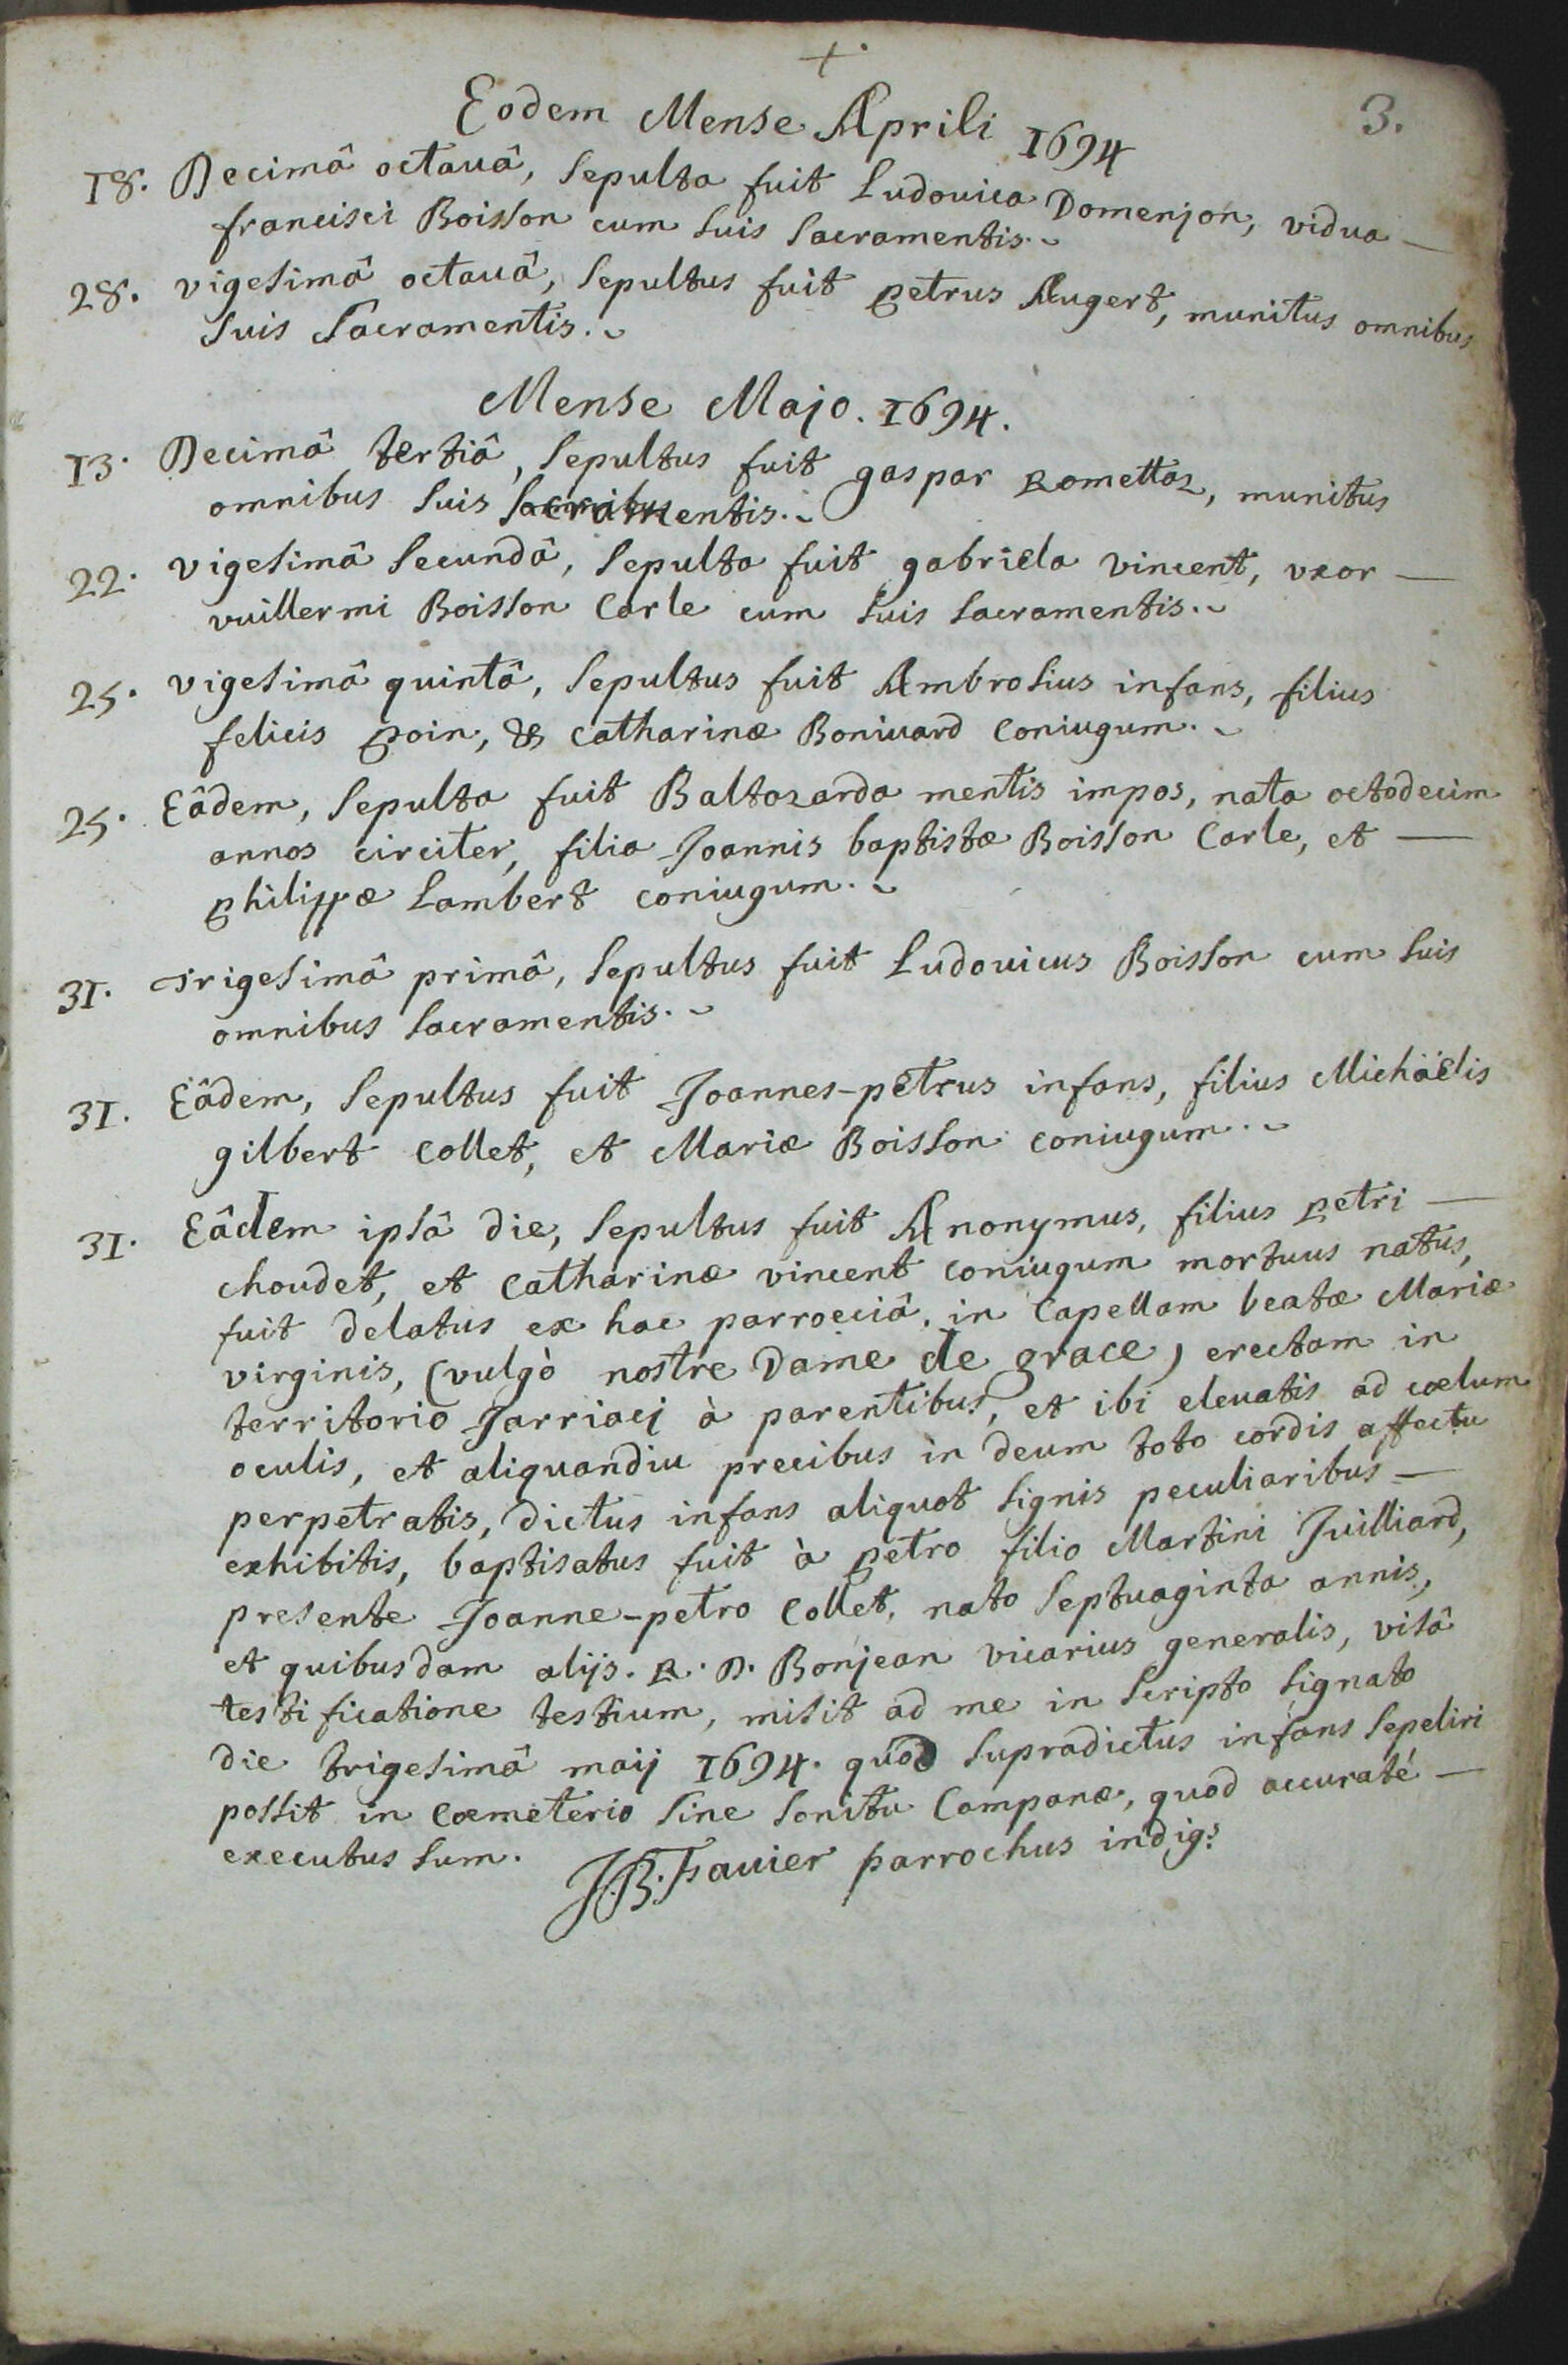 +
3.
Eodem Mense Aprili 1694
18. Decimâ octauâ, sepulta fuit Ludouica Domenjon, vidua —
francisci Boisson cum suis sacramentis.
28. vigesimâ octauâ, sepultus fuit petrus Augert, munitus omnibus
suis Sacramentis.
Mense Majo. 1694.
13. Decimâ tertiâ, sepultus fuit gaspar Romettaz, munitus
omnibus suis sacramentis.
22. vigesimâ secundâ, sepulta fuit gabriela vincent, vxor —
vuillermi Boisson Carle cum suis sacramentis.
25. vigesimâ quintâ, sepultus fuit Ambrosius infans, filius
felicis poin, & catharinæ Boniuard coniugum.
25. Eâdem, sepulta fuit Baltazarda mentis impos, nata octodecim
annos circiter, filia Joannis baptistæ Boisson Carle, et —
philippæ Lambert coniugum.
31. Trigesimâ primâ, sepultus fuit Ludouicus Boisson cum suis
omnibus sacramentis.
31. Eâdem, sepultus fuit Joannes-petrus infans, filius Michäelis
gilbert collet, et Mariæ Boisson coniugum.
31. Eâdem ipsâ die, sepultus fuit Anonymus, filius petri —
choudet, et catharinæ vincent coniugum mortuus natus,
fuit delatus ex hac parroeciâ, in Capellam beatæ Mariæ
virginis, (vulgò nostre Dame de grace) erectam in
territorio Jarriacj à parentibus, et ibi eleuatis ad cœlum
oculis, et aliquandiu precibus in deum toto cordis affectu
perpetratis, dictus infans aliquot signis peculiaribus —
exhibitis, baptisatus fuit à petro filio Martini Juilliard,
presente Joanne-petro Collet, nato septuaginta annis,
et quibusdam alijs. R. D. Bonjean vicarius generalis, visâ
testificatione testium, misit ad me in scripto signato
die trigesimâ maij 1694. quod supradictus infans sepeliri
possit in cœmeterio sine sonitu Campanæ, quod accuraté —
executus sum. J.B. Fauier parrochus indig.s